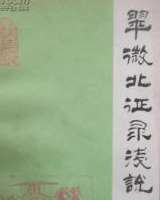 翠微北征录浅説